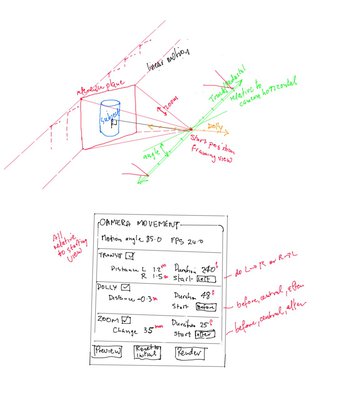 linear motion
reference plane
Subject
zoom
Dolly
Start position
framing view
relative to
camera horizontal
angle
All
relative
to starting
view
CAMERA MOVEMENT
Motion angle 35.0 FPS 24.0
TRANS
Distance L 12m Duration 240f
R 1.5m Start: Left
do L→R or R→L
DOLLY
Distance -0.3m Duration 48f
Start
before, central, after
ZOOM
Change 35mm Duration 25f
Start after
before, central, after
Preview Reset to Initial Render